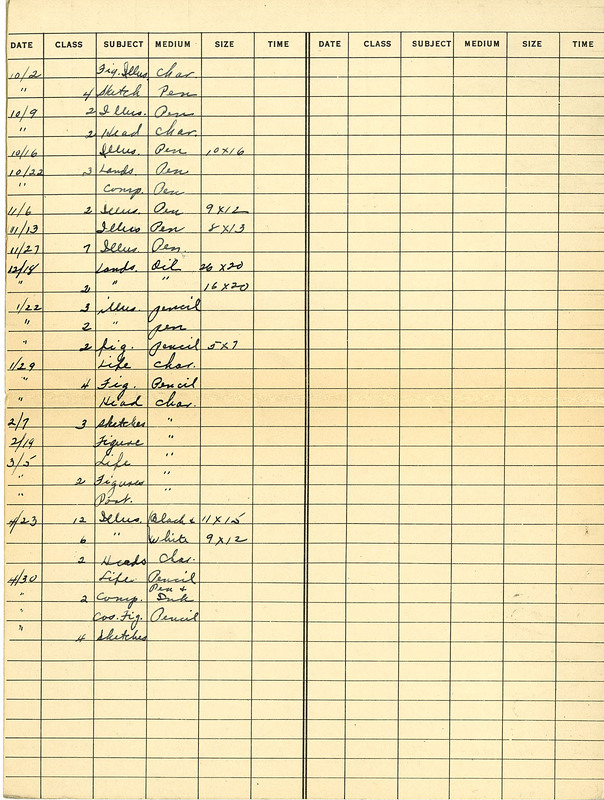 DATE CLASS SUBJECT MEDIUM SIZE TIME DATE CLASS SUBJECT MEDIUM SIZE TIME
10/2 Fig. Illus. Char.
" 4 Sketch Pen
10/9 2 Illus. Pen
" 2 Head Char.
10/16 Illus. Pen 10x16
10/22 3 Lands. Pen
" Comp. Pen
11/6 2 Illus. Pen 9x12
11/13 Illus Pen 8x13
11/27 7 Illus. Pen.
12/18 Lands. Oil 26x20
" 2 " " 16x20
1/22 3 illus. pencil
" 2 " pen
" 2 fig. pencil 5x7
1/29 Life Char.
" 4 Fig. Pencil
" Head Char.
2/7 3 Sketches "
2/19 Figure "
3/5 Life "
" 2 Figures "
" Port. "
4/23 12 Illus. Black & 11x15
6 " White 9x12
2 Heads Char.
4/30 Life Pencil
" 2 Comp. Pen & Ink
" Cos. Fig. Pencil
" 4 Sketches